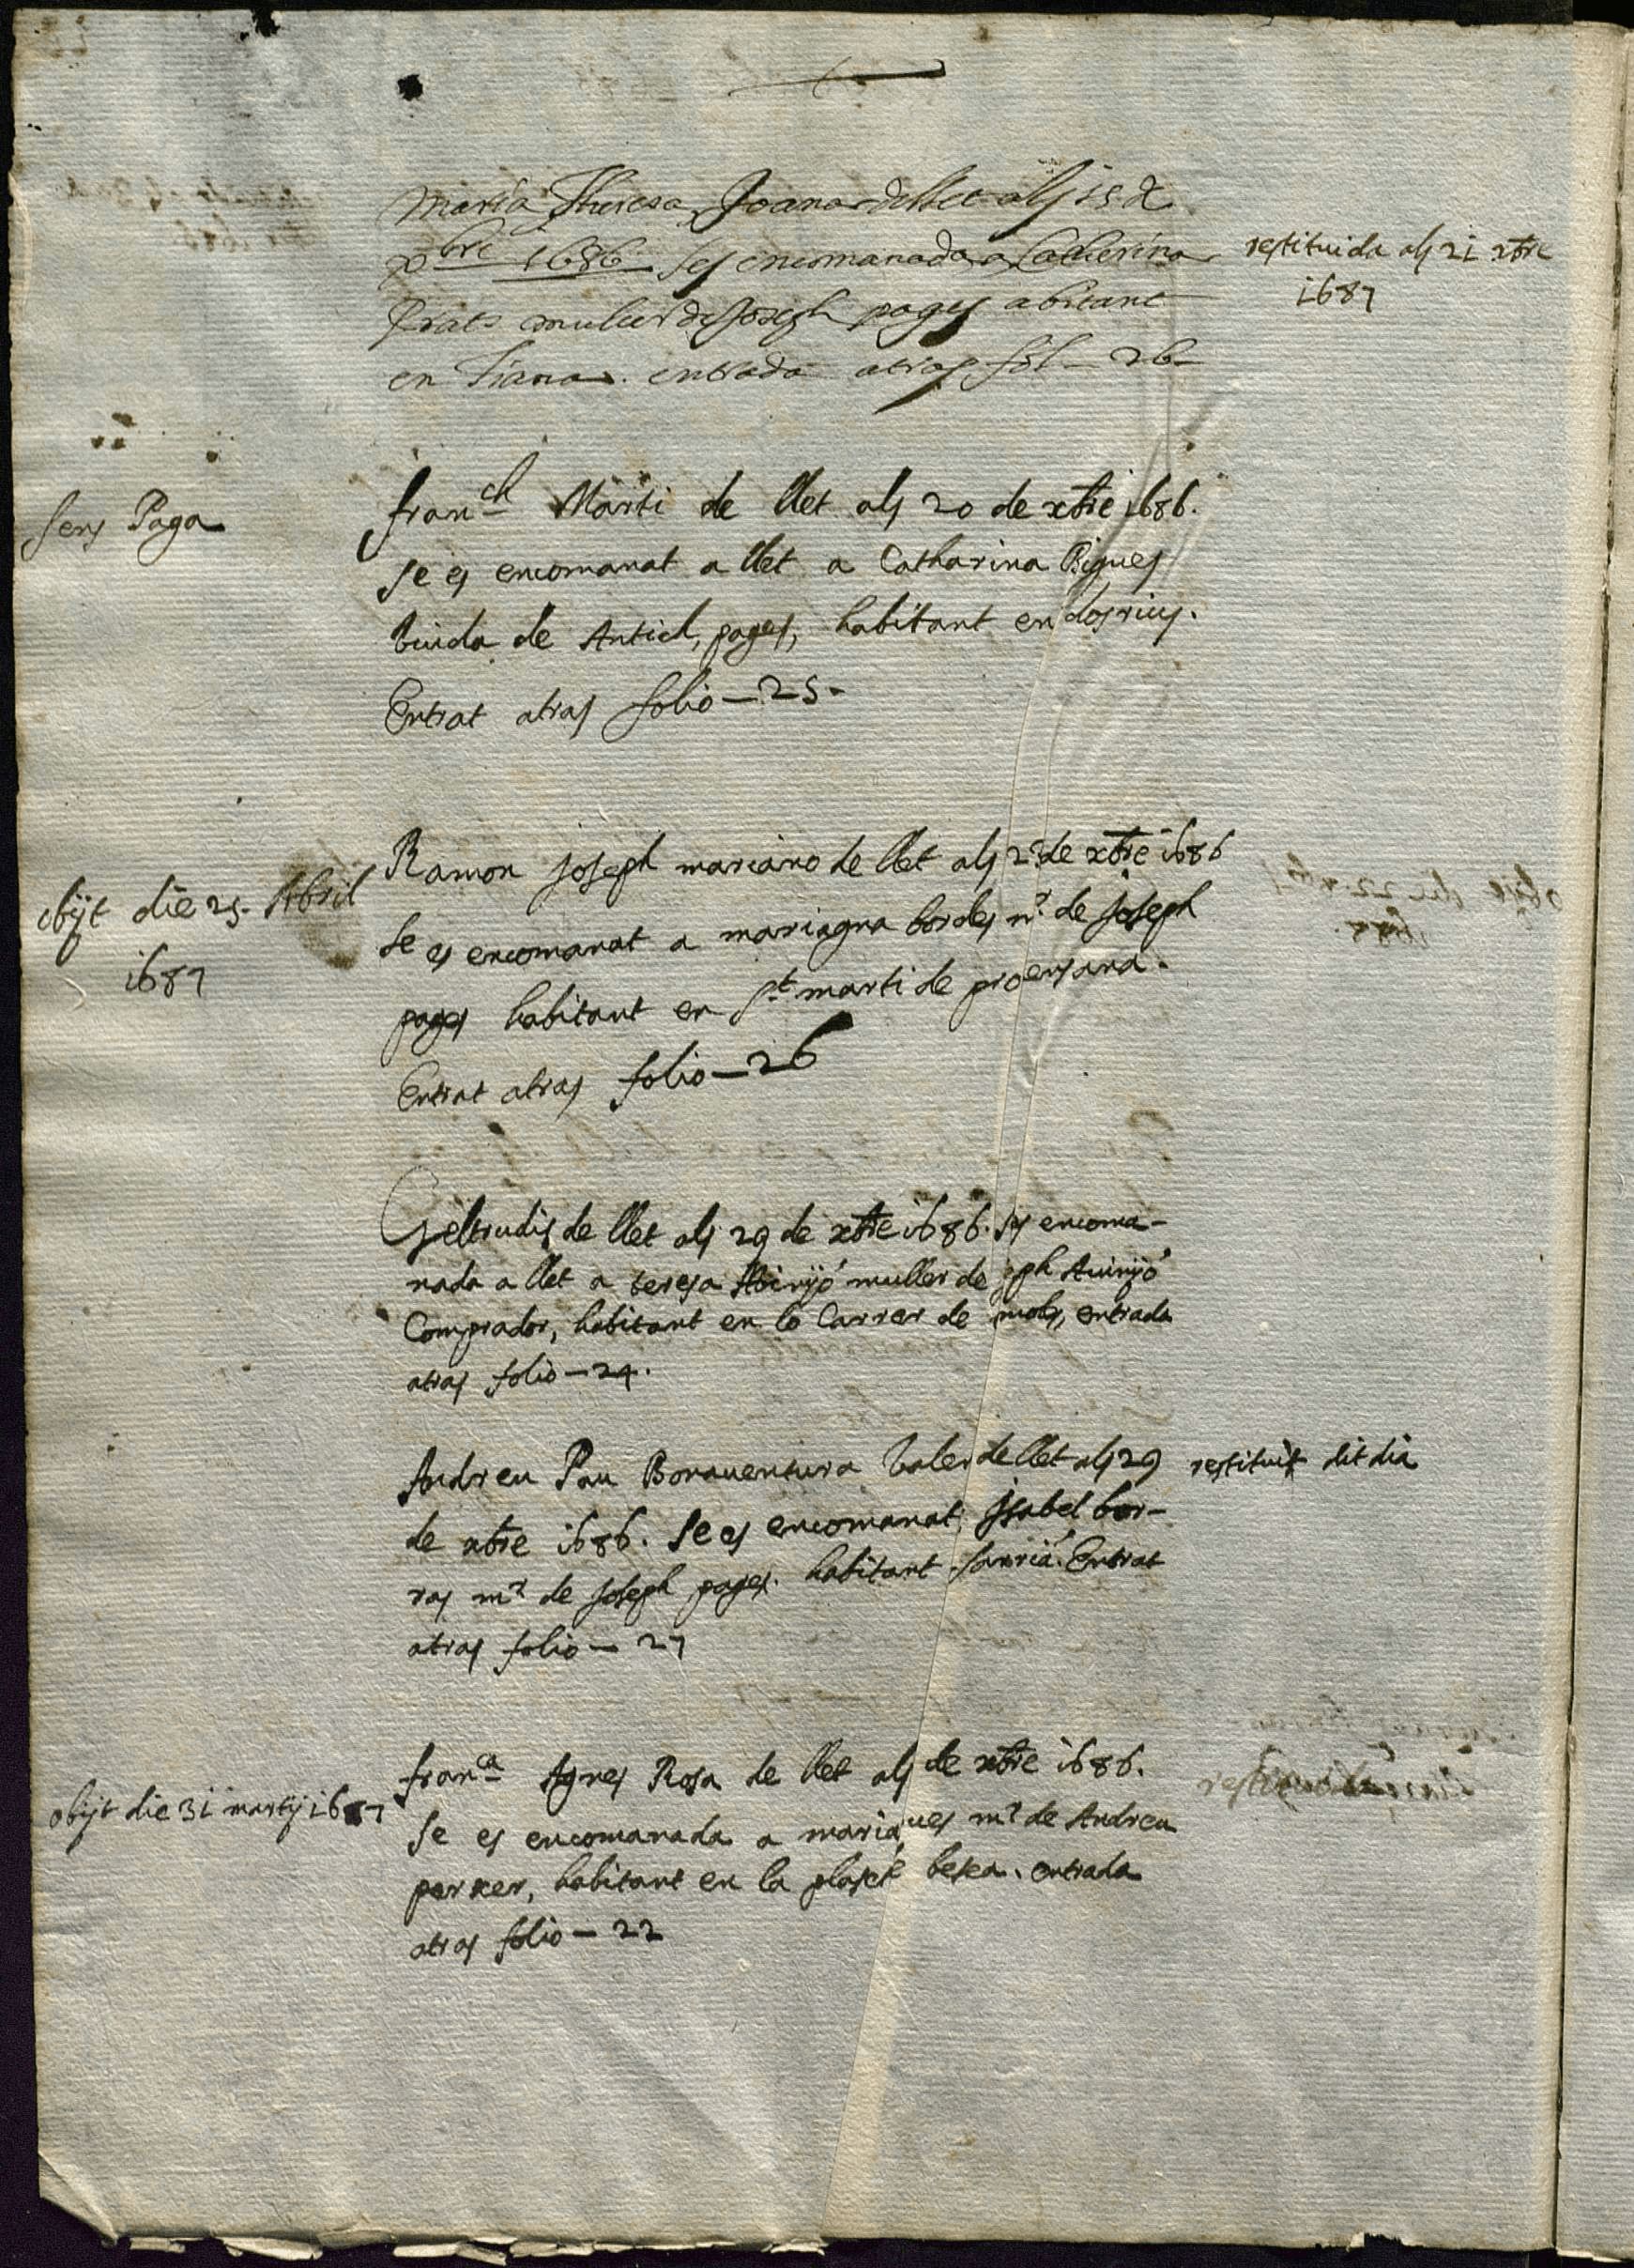 Maria Theresa Joana de llet als 15 de
xbre 1686 ses encomanada a Catherina
Prats muller de Joseph pages abitant
en Tiana. entrada atras fol - 26
restituida als 21 xbre
1687
Sens Paga
franch Marti de llet als 20 de xbre 1686.
se es encomanat a llet a Catharina Bigues
viuda de Antich, pages, habitant en dosrius.
Entrat atras folio - 25.
obijt die 25. Abril
1687
Ramon Joseph mariano de llet als de xbre 1686
se es encomanat a mariagna bordes mr de Joseph
pages habitant en st marti de proensana.
Entrat atras folio - 26
Geltrudis de llet als 29 de xbre 1686. ses encoma-
nada a llet a teresa Avinyó muller de Jph Avinyó
Comprador, habitant en lo Carrer de mols, entrada
atras folio - 24.
Andreu Pau Bonaventura Valer de llet als 29
de xbre 1686. se es encomanat Isabel bor-
ras mr de Joseph pages. habitant sarriá. Entrat
atras folio - 27
restituit dit dia
obijt die 31 martij 1687
franca Agnes Rosa de llet als de xbre 1686.
se es encomanada a maria mr de Andreu
parxer, habitant en la plaset besea. entrada
atras folio - 22